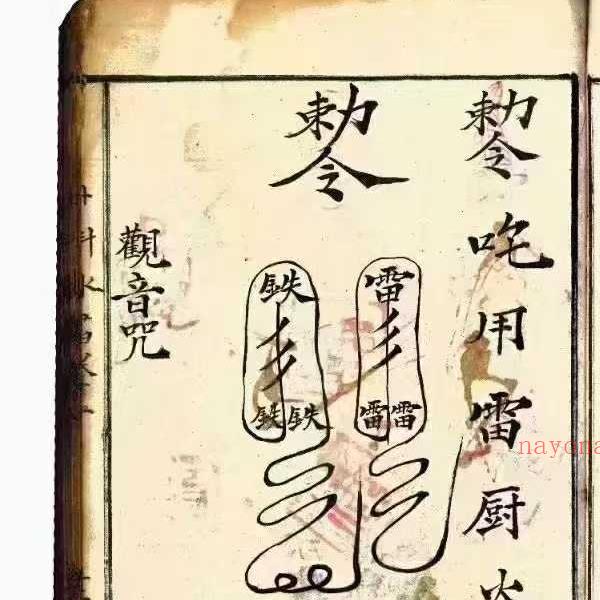 勅令
咤用雷厨
勅令
雷
雷雷
鉄
鉄鉄
觀音咒
nayona